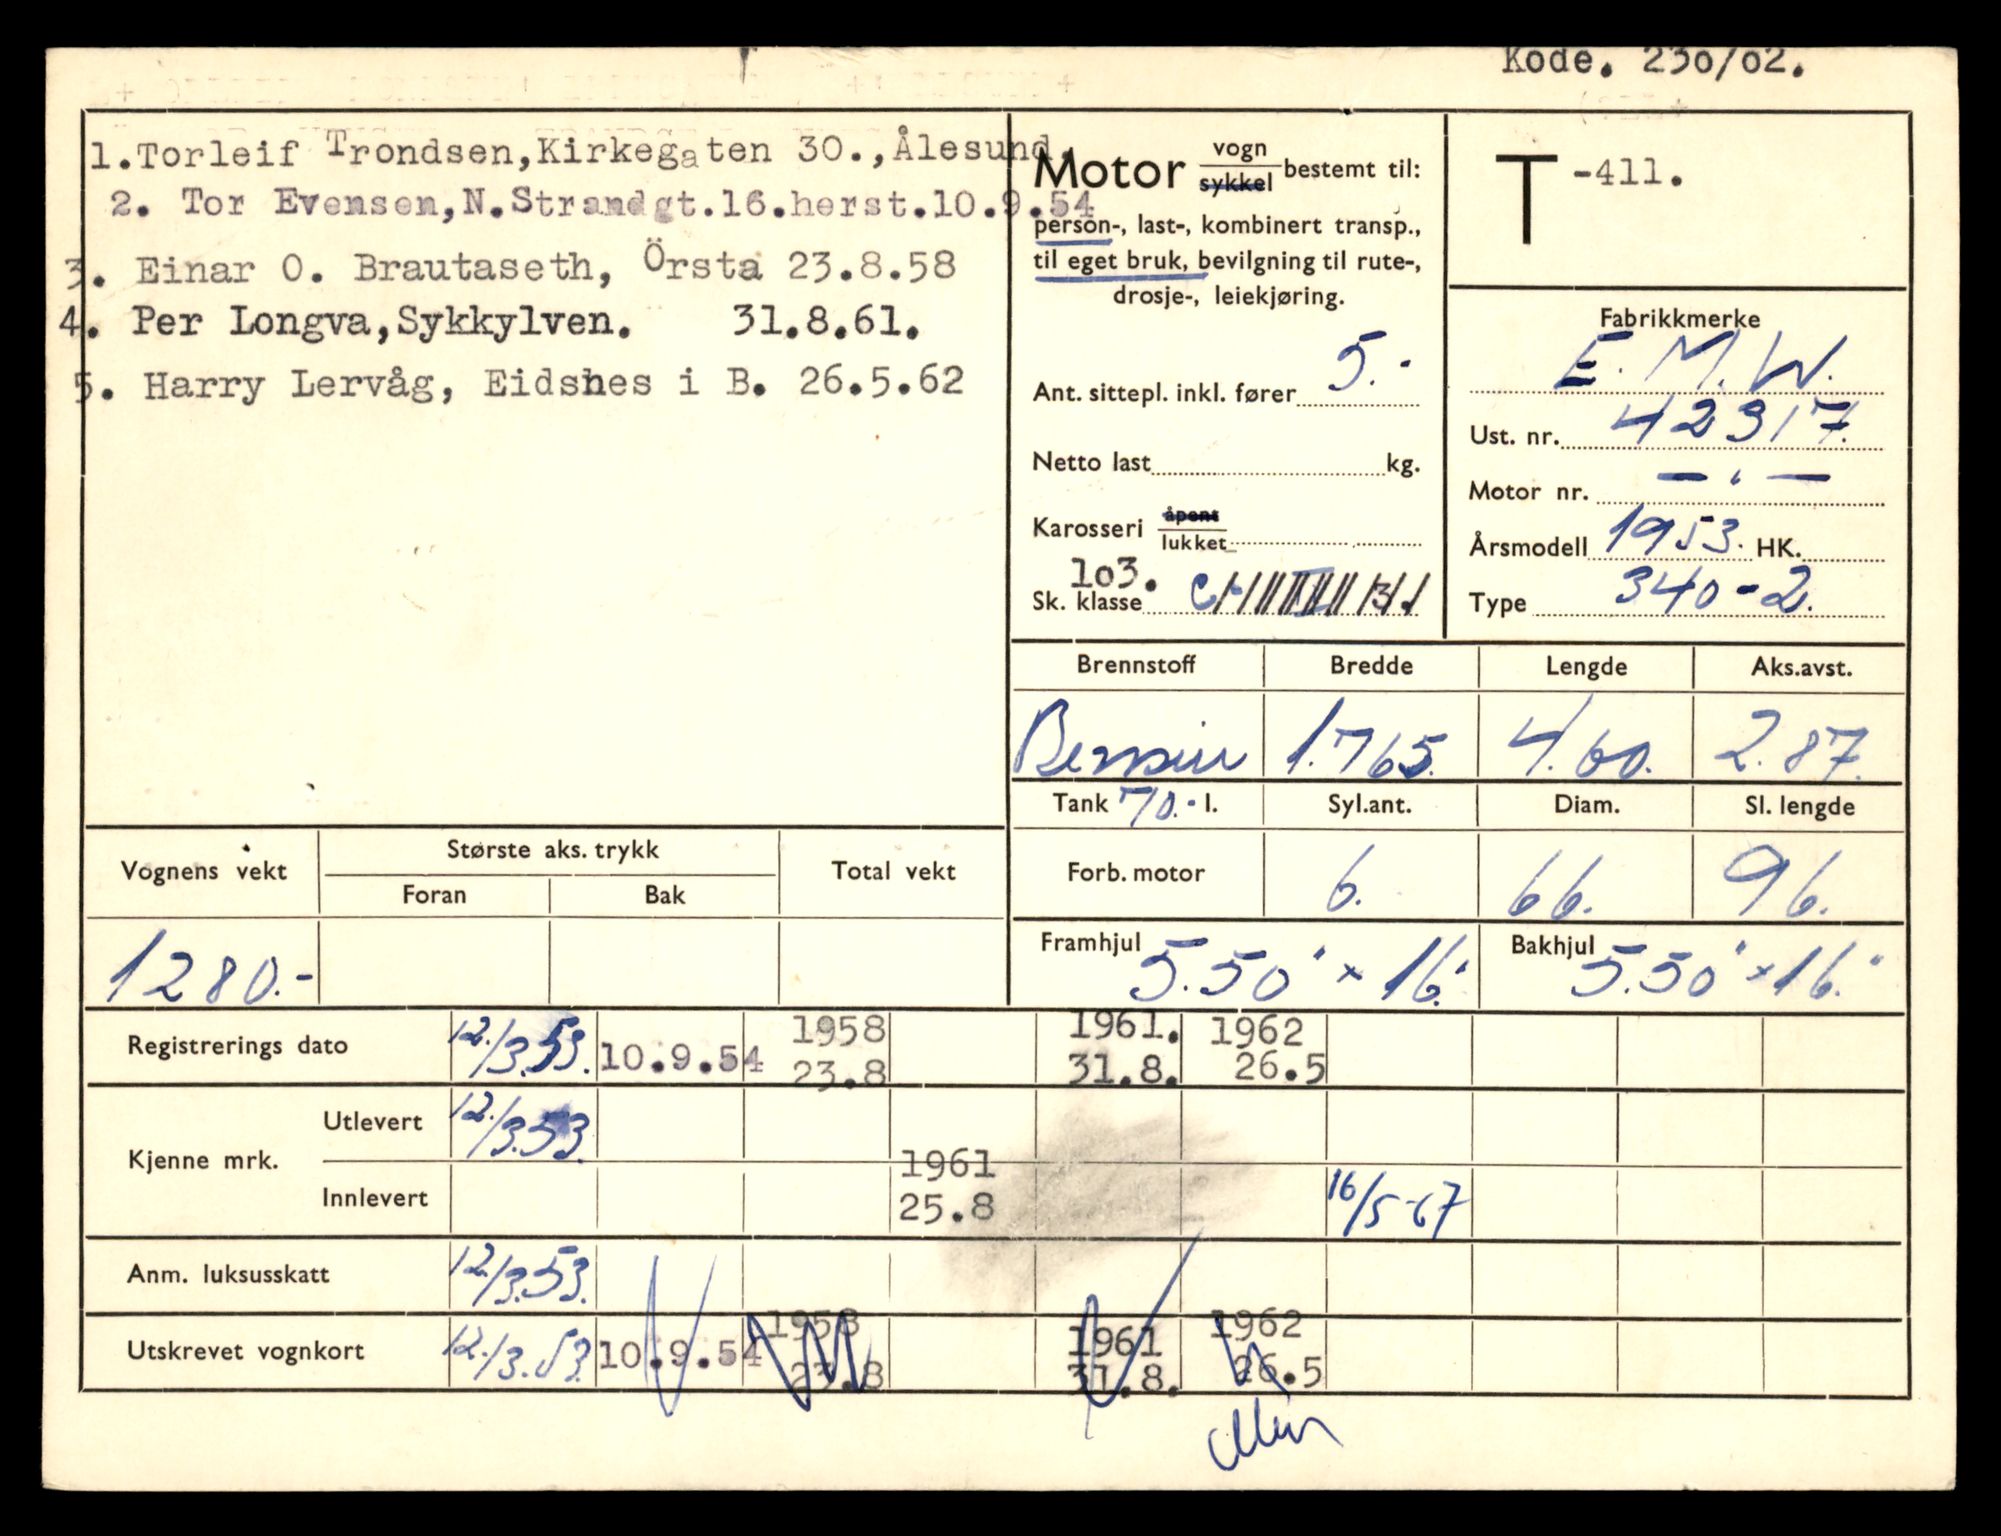 Kode. 230/02.
1.Torleif Trondsen,Kirkegaten 30.,Ålesund.
2. Tor Evensen,N.Strandgt.16.herst.10.9.54
3. Einar O. Brautaseth, Örsta 23.8.58
4. Per Longva,Sykkylven. 31.8.61.
5. Harry Lervåg, Eidsnes i B. 26.5.62
Motor vogn
sykkel bestemt til:
person-, last-, kombinert transp.,
til eget bruk, bevilgning til rute-,
drosje-, leiekjøring.
Ant. sittepl. inkl. fører 5.-
Netto last kg.
Karosseri åpent
lukket
103.
Sk. klasse
T -411.
Fabrikkmerke
E.M.W.
Ust. nr. 42317.
Motor nr. — " —
Årsmodell 1953. HK.
Type 340-2.
Brennstoff Bredde Lengde Aks.avst.
Bensin 1.765. 4.60. 2.87.
Tank 70.- l. Syl.ant. Diam. Sl. lengde
Forb. motor 6. 66. 96.
Framhjul 5.50" × 16." Bakhjul 5.50" × 16."
Vognens vekt Største aks. trykk Total vekt
Foran Bak
1280.-
Registrerings dato 12./3.53. 10.9.54 1958 23.8 1961. 31.8. 1962 26.5
Kjenne mrk. Utlevert 12./3.53.
Innlevert 1961 25.8 16/5-67
Anm. luksusskatt 12/3.53.
Utskrevet vognkort 12./3.53. 10.9.54 1958 23.8 1961 31.8. 1962 26.5